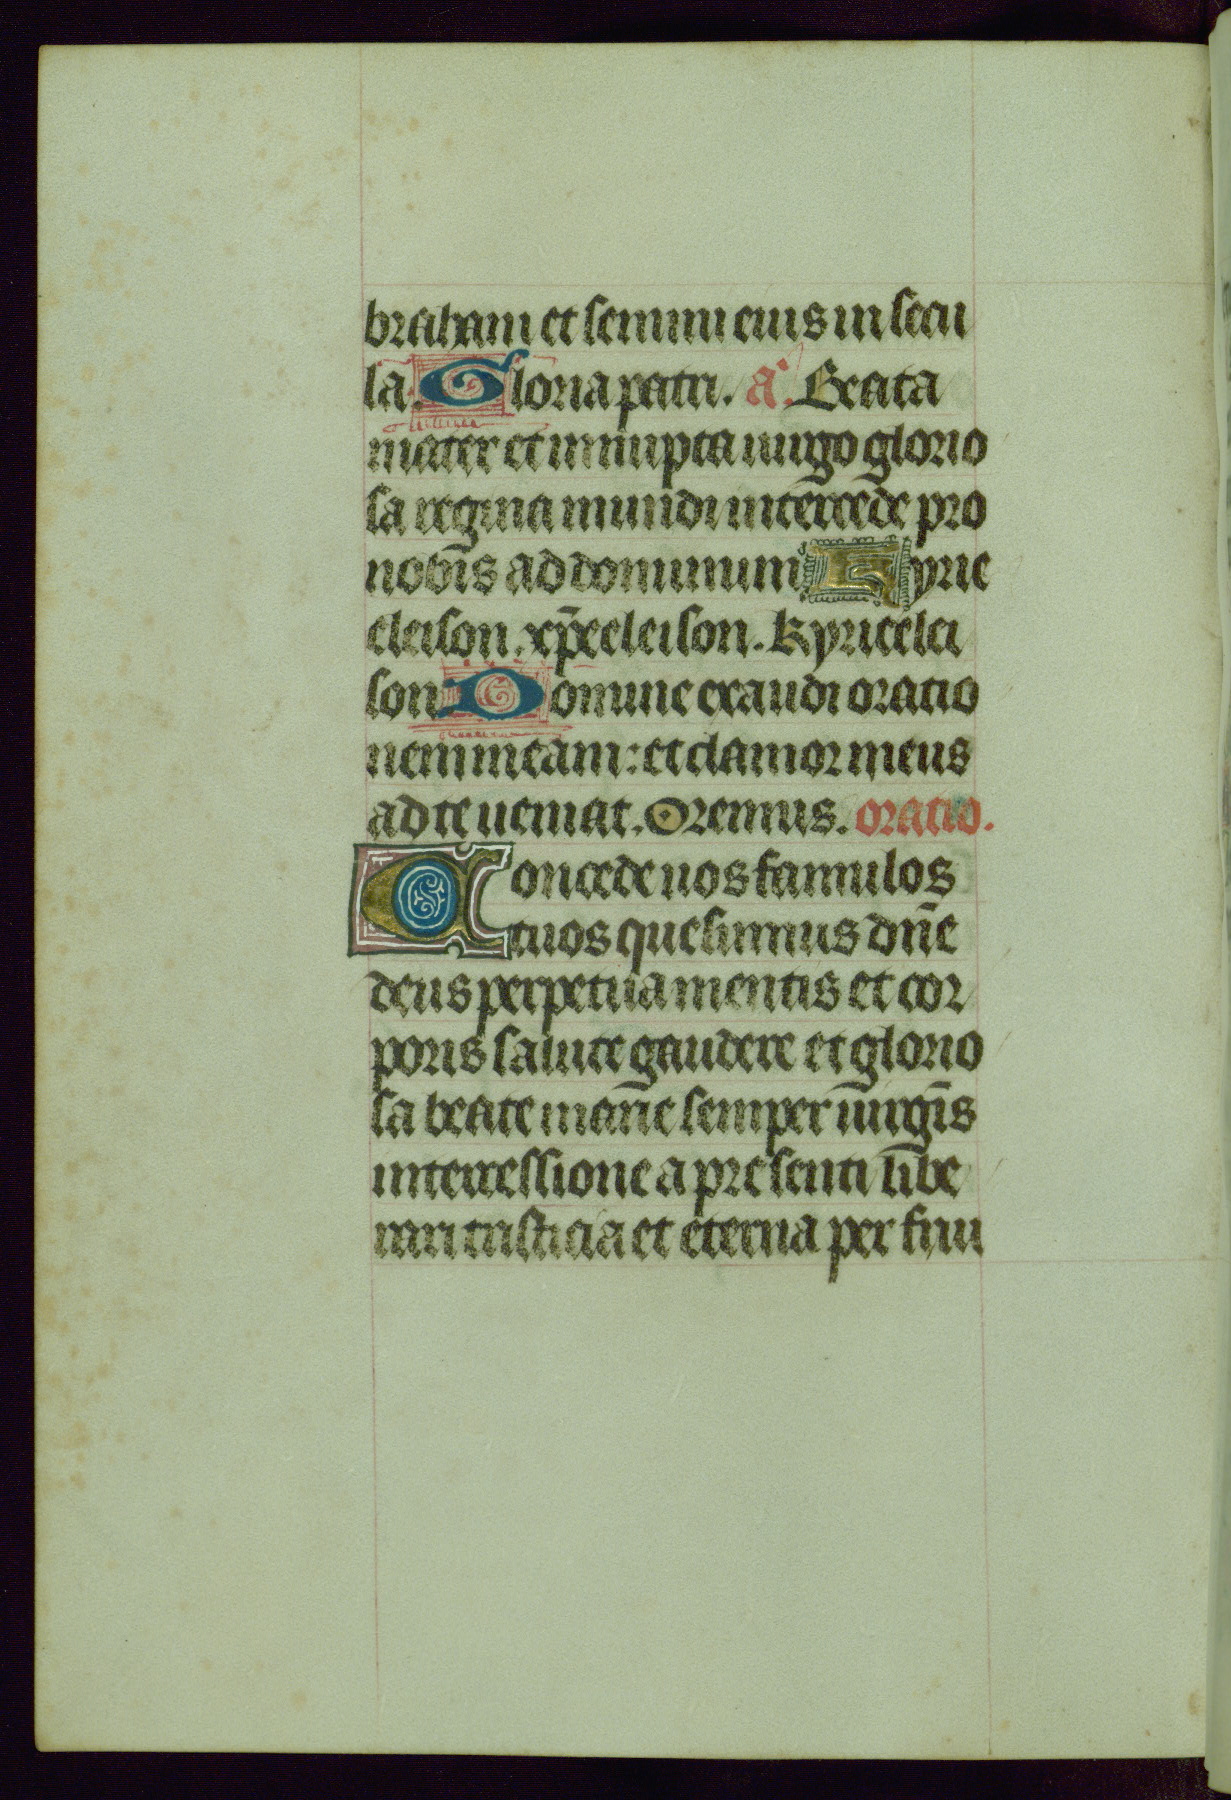 braham et semini eius in secu
la. Gloria patri. a͛. Beata
mater et innupta uirgo glorio
sa regina mundi intercede pro
nobis ad dominum Kyrie
eleison. xp̄eeleison. Kyrieelei
son. Domine exaudi oratio
nem meam: et clamor meus
ad te ueniat. Oremus. oratio.
Concede nos famulos
tuos quesumus dn̄e
deus perpetua mentis et cor
poris salute gaudere et glorio
sa beate marie semper uirgīs
intercessione a presenti libe
rari tristicia et eterna per frui